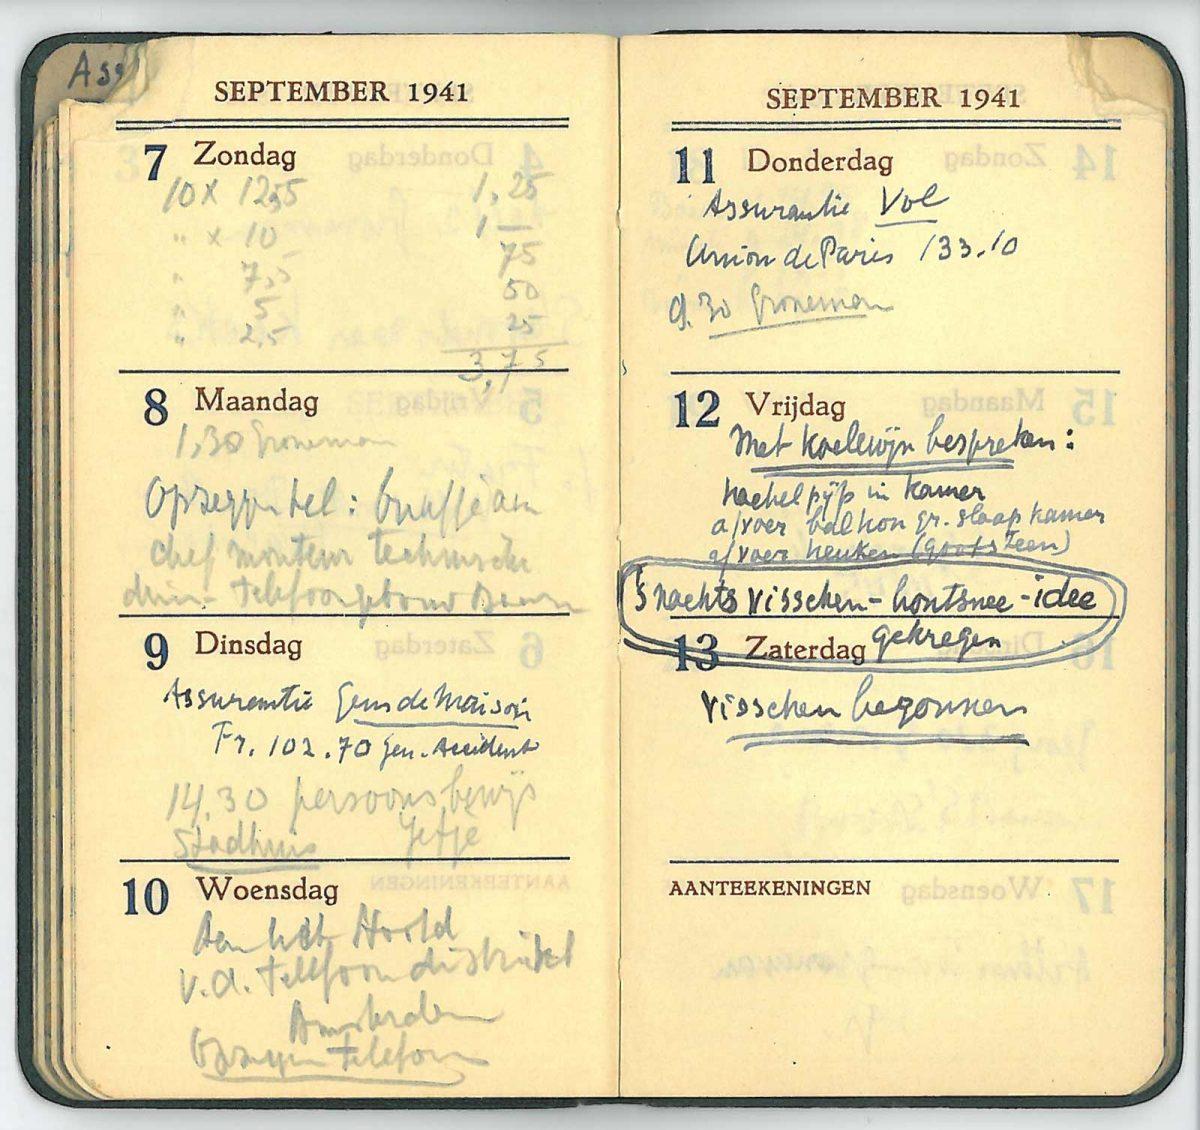 Ass
SEPTEMBER 1941
7 Zondag
10 x 12,5 1,25
" x 10 1,—
" 7,5 75
" 5 50
" 2,5 25
3,75
8 Maandag
1,30 Groneman
Opzeggen tel:
chef monteur technische
dienst telefoongebouw
9 Dinsdag
Assurantie Gens de Maison
Fr. 102.70 Gen. Accident
14,30 persoonsbewijs
Stadhuis Jetje
10 Woensdag
Aan het Hoofd
v.d. telefoondistrikt
Amsterdam
Opzeggen telefoon
SEPTEMBER 1941
11 Donderdag
Assurantie Vol
Union de Paris 133.10
9.30 Groneman
12 Vrijdag
Met Koelewijn bespreken:
kachelpijp in kamer
afvoer balkon gr. slaapkamer
afvoer keuken (gootsteen)
's nachts visschen - houtsnee - idee
gekregen
13 Zaterdag
visschen begonnen
AANTEEKENINGEN